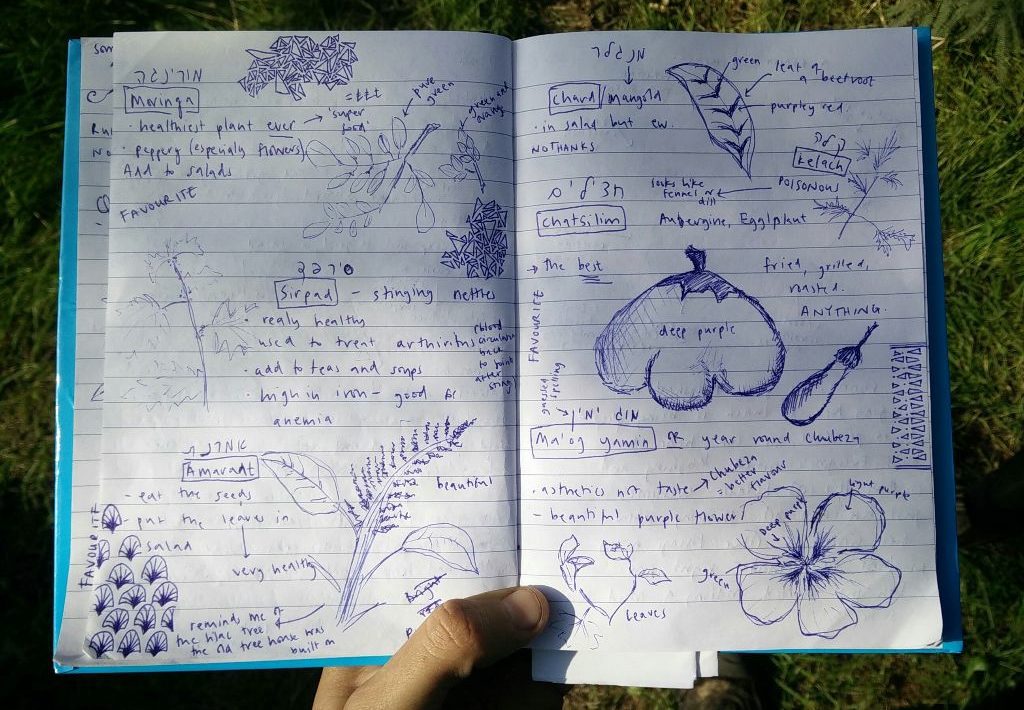 som
מורינגה
Moringa
= ttt
· healthiest plant ever → 'super food'
pure green
green and orange
· peppery (especialy flowers)
Add to salads
FAVOURITE
סירפד
Sirpad - stinging nettles
· realy healthy
· used to treat arthiritus
· add to teas and soups
· high in iron - good for
anemia
rblood
back
to point
after
sting
Amarant
- eat the seeds
- put the leaves in
salad
very healthy
beautiful
FAVOURITE
reminds me of
the lilac tree
the old tree house was
built on
מנגלד
chard / mangold
green
leaf of
a beetroot
purpley red.
· in salad but ew.
NOTHANKS
kelach
POISONOUS
looks like
fennel or
dill
חצילים
chatsilim
Aubergine, Eggplant
→ the best
FAVOURITE
fried, grilled,
roasted.
ANYTHING.
deep purple
guessed
spelling
Ma'og yamin or year round chubeza
· asthetics not taste → Chubeza
= better
flavour
- beautiful purple flower
light purple
Deep purple
green
leaves